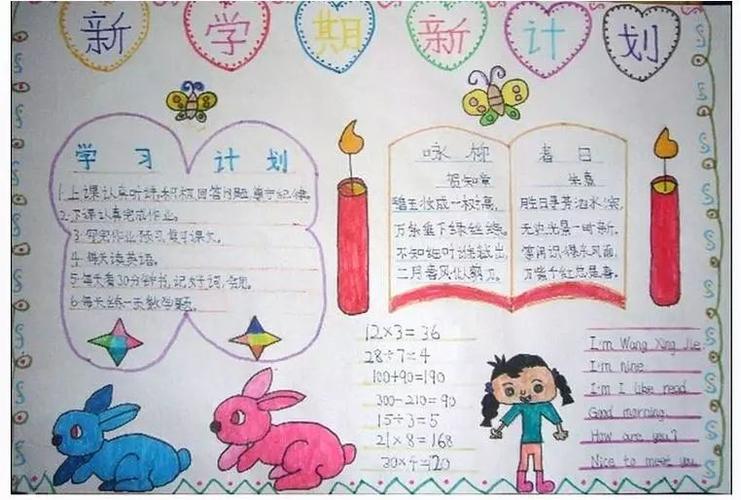 新学期新计划
学习计划
1.上课认真听讲,积极回答问题,遵守纪律。
2.下课认真完成作业。
3.写完作业预习,复习课文。
4.每天读英语。
5.每天看30分钟书,记好词,
6.每天练一页数学题。
咏柳
贺知章
碧玉妆成一树高,
万条垂下绿丝绦。
不知细叶谁裁出,
二月春风似剪刀。
春日
朱熹
胜日寻芳泗水滨,
无边光景一时新。
等闲识得东风面,
万紫千红总是春。
12×3=36
28÷7=4
100+90=190
300-210=90
15÷3=5
21×8=168
30×4=120
I'm Wang Xing Jie
I'm nine
I'm I like read
Good morning.
How are you?
Nice to meet you